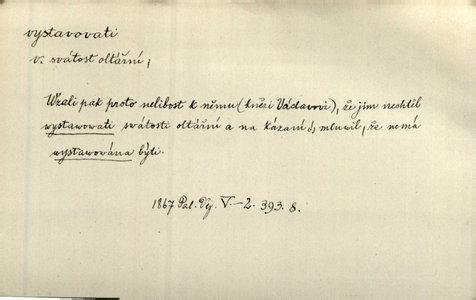 vystavovati
v. svátost oltářní,
Wzali pak proto nelibost k němu (knězi Václavovi), že jim nechtěl
wystawowati swátosti oltářní a na kázaní mluwil, že nemá
wystawowána býti.
1867 Pal. Děj. V.–2. 393. 8.